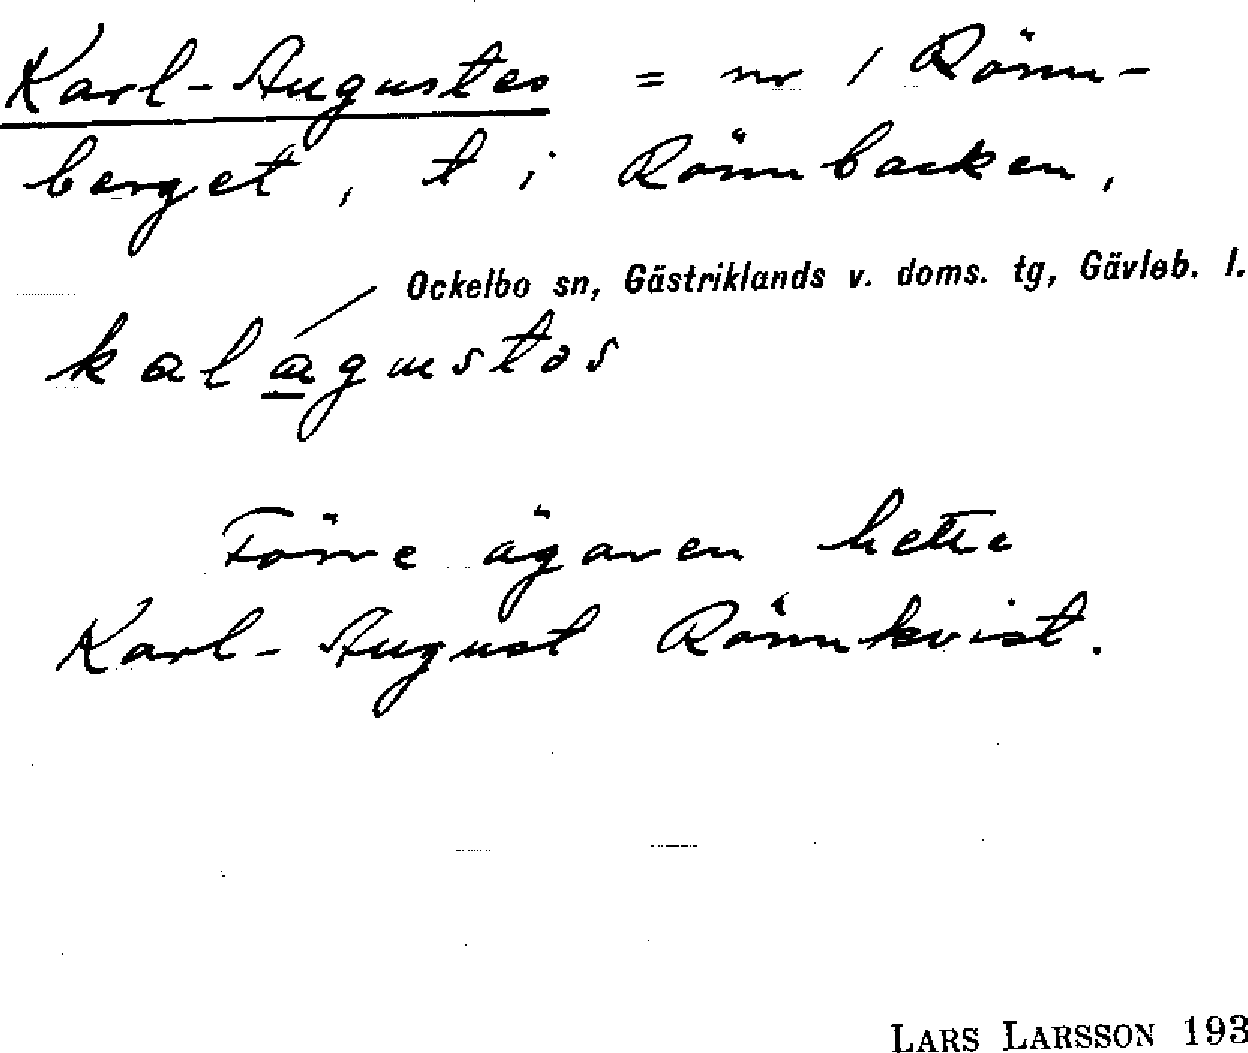 Karl-Augustes = nr 1 Rönn-
berget, t i Rönnbacken,
Ockelbo sn, Gästriklands v. doms. tg, Gävleb. l.
kalagustos
Förre ägaren hette
Karl-August Rönnkvist.
LARS LARSSON 193